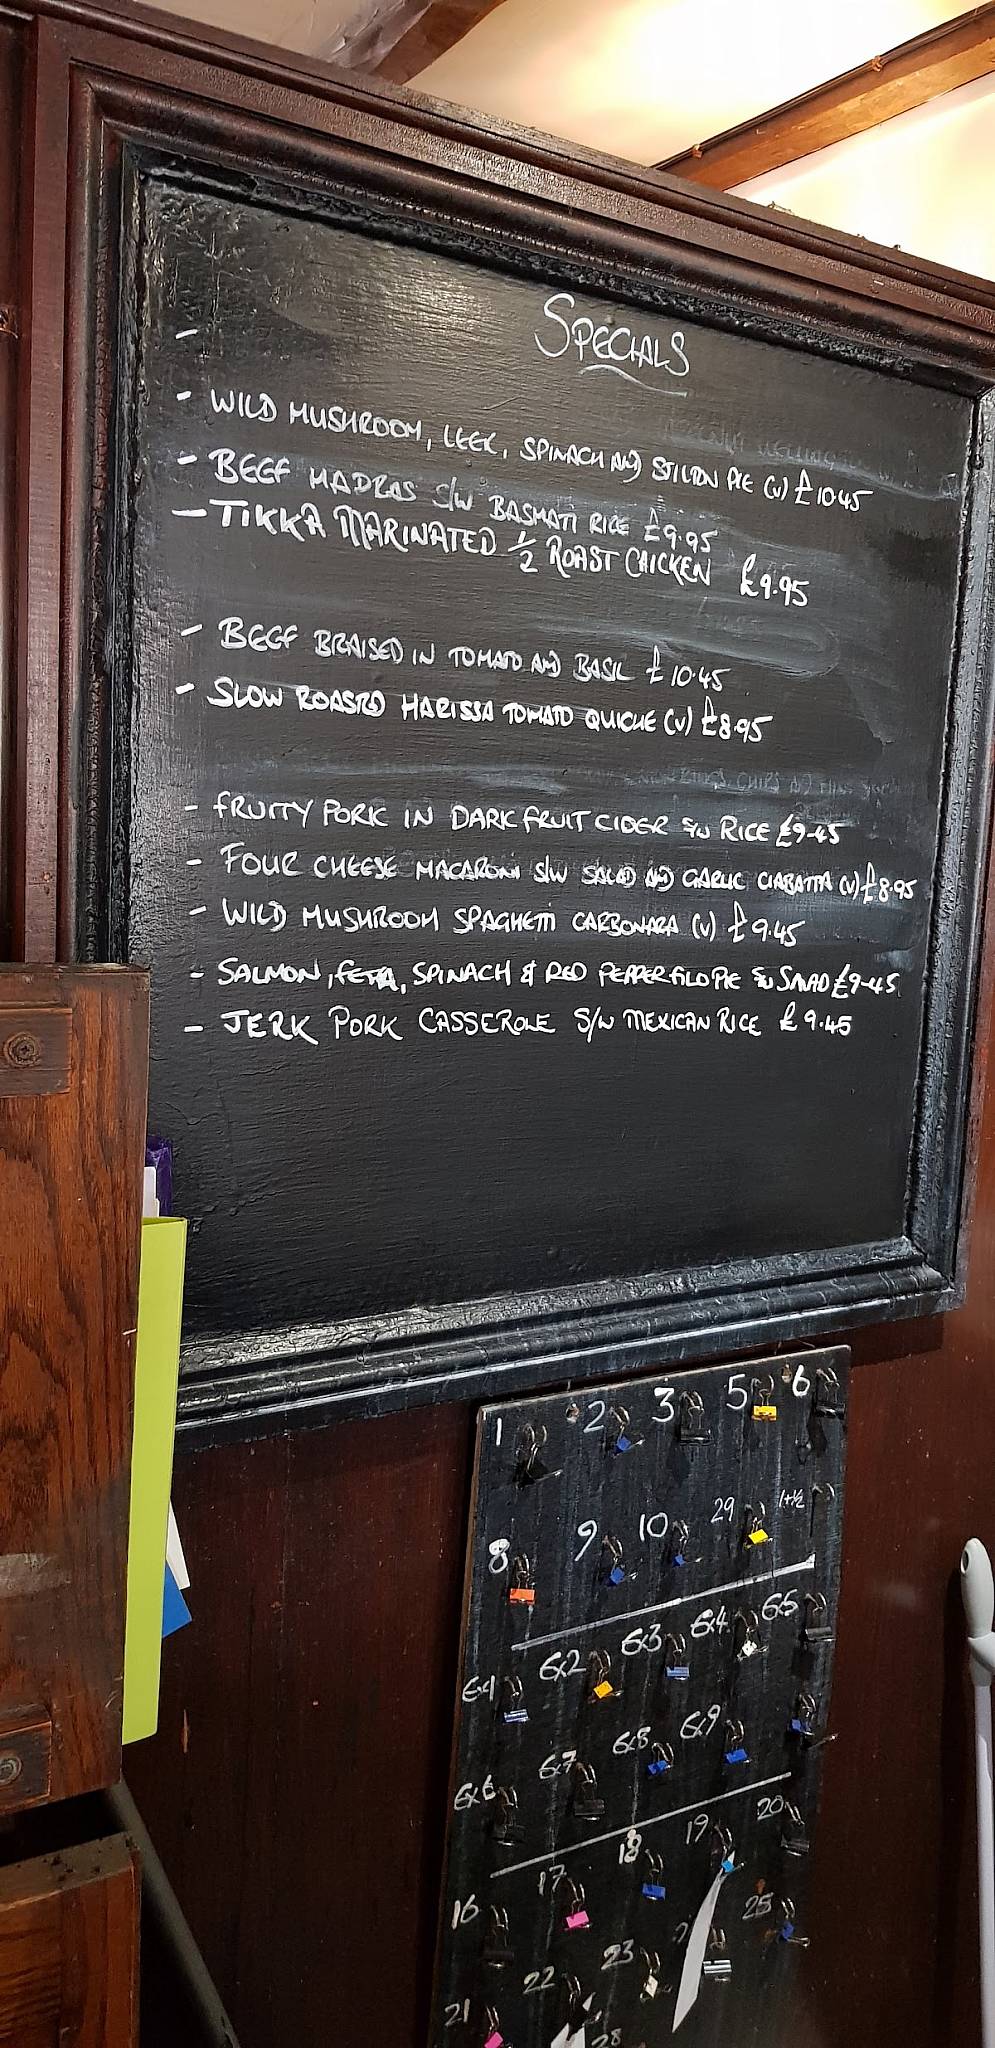 SPECIALS
-
- WILD MUSHROOM, LEEK, SPINACH AND STILTON PIE (V) £10.45
- BEEF MADRAS S/W BASMATI RICE £9.95
- TIKKA MARINATED 1/2 ROAST CHICKEN £9.95
- BEEF BRAISED IN TOMATO AND BASIL £10.45
- SLOW ROASTED HARISSA TOMATO QUICHE (V) £8.95
- FRUITY PORK IN DARK FRUIT CIDER S/W RICE £9.45
- FOUR CHEESE MACARONI S/W SALAD AND GARLIC CIABATTA (V) £8.95
- WILD MUSHROOM SPAGHETTI CARBONARA (V) £9.45
- SALMON, FETA, SPINACH & RED PEPPER FILO PIE S/W SALAD £9.45
- JERK PORK CASSEROLE S/W MEXICAN RICE £9.45
1 2 3 5 6
8 9 10 29 1+1/2
6x1 6x2 6x3 6x4 6x5
6x6 6x7 6x8 6x9
16 17 18 19 20
21 22 23 25
28